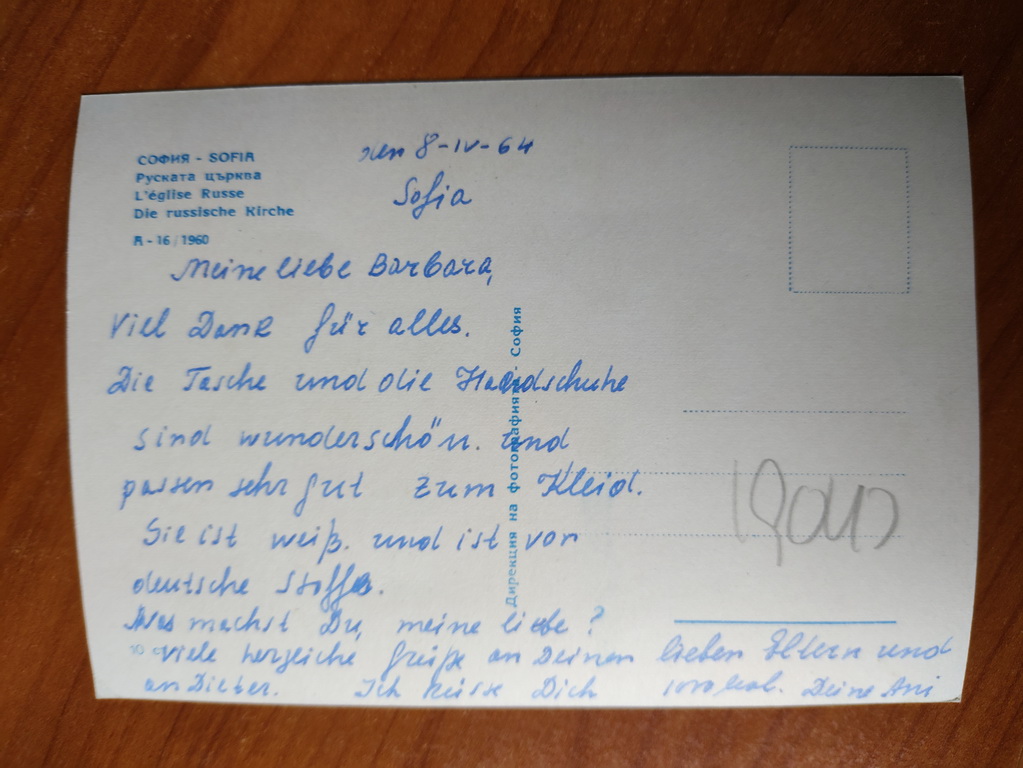 СОФИЯ - SOFIA
Руската църква
L'église Russe
Die russische Kirche
А - 16 / 1960
den 8-IV-64
Sofia
Meine liebe Barbara,
Viel Dank für alles.
Die Tasche und die Handschuhe
sind wunderschön. und
passen sehr gut zum Kleid.
Sie ist weiß. und ist von
deutsche Stoffe.
Was machst Du, meine liebe?
Viele herzliche Grüße an Deinen lieben Eltern und
an Dieter. Ich küsse Dich 1000 mal. Deine Ani
Дирекция на фотографията София
10